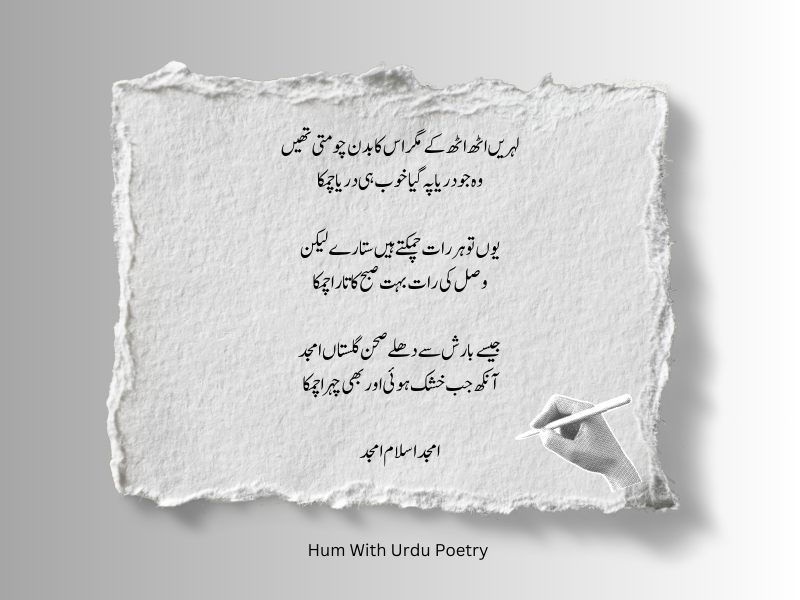 لہریں اٹھ اٹھ کے مگر اس کا بدن چومتی تھیں
وہ جو دریا پہ گیا خوب ہی دریا چمکا
یوں تو ہر رات چمکتے ہیں ستارے لیکن
وصل کی رات بہت صبح کا تارا چمکا
جیسے بارش سے دھلے صحن گلستاں امجد
آنکھ جب خشک ہوئی اور بھی چہرا چمکا
امجد اسلام امجد
Hum With Urdu Poetry